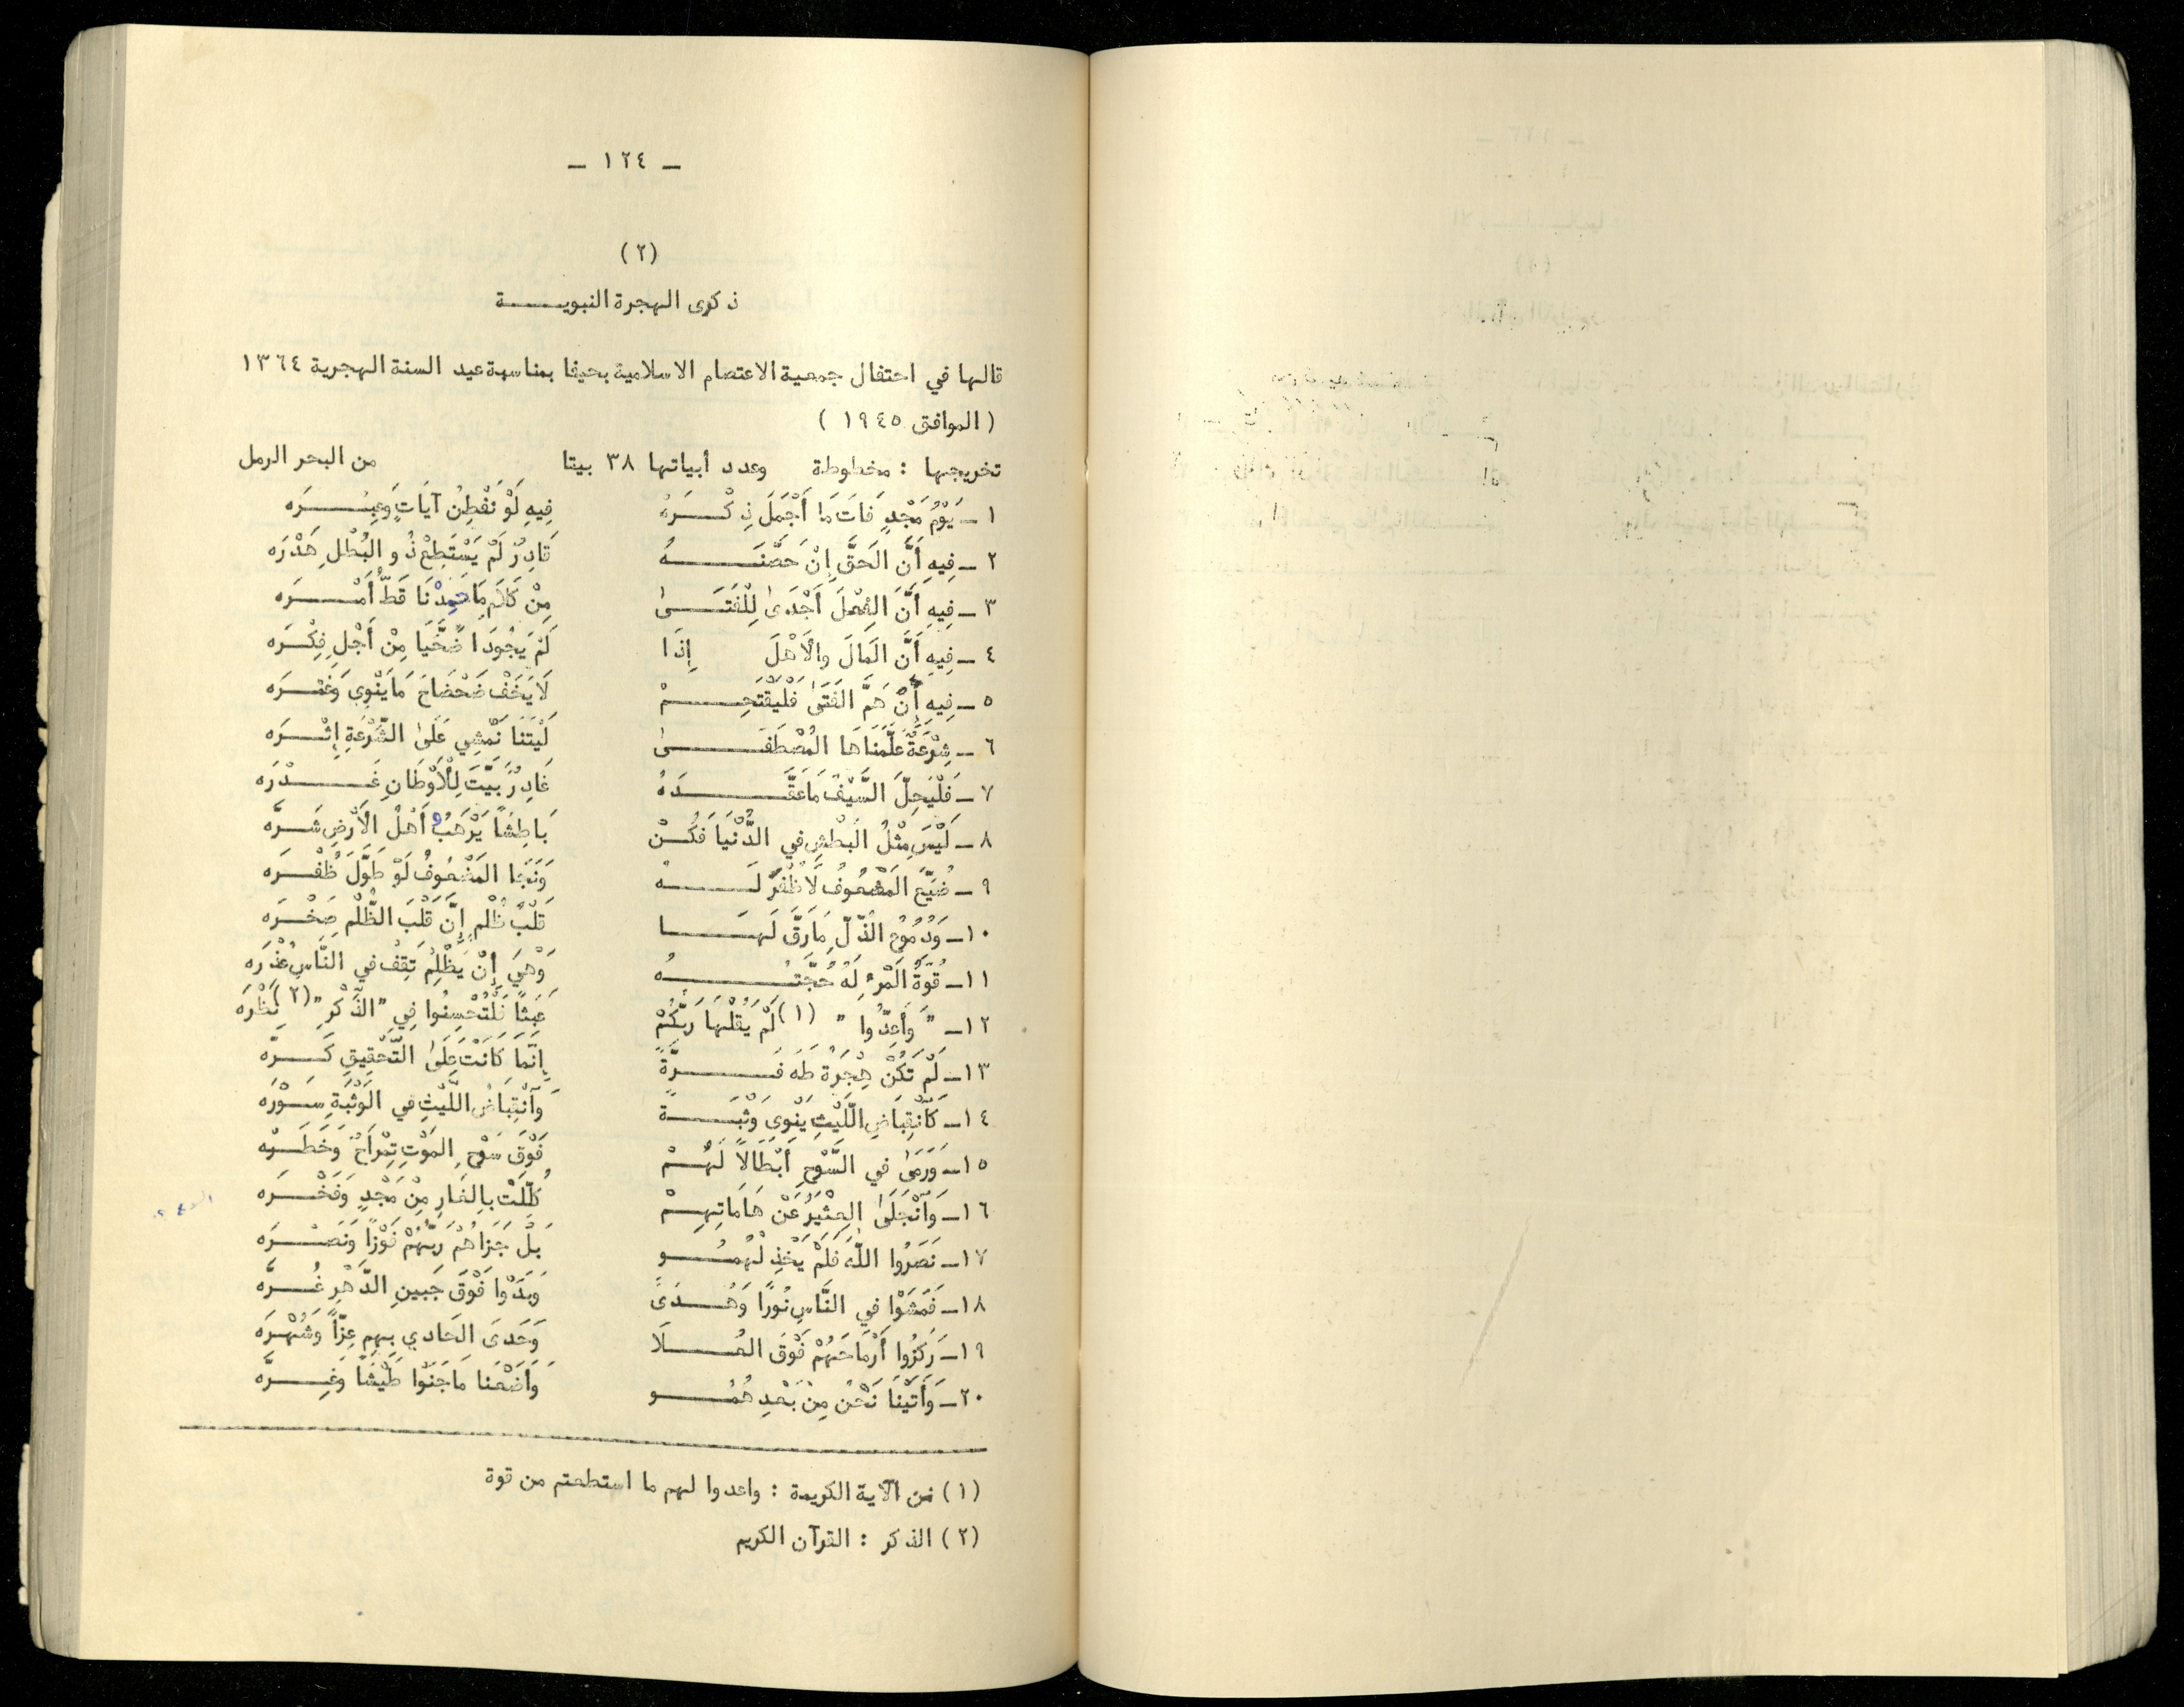 ـ ١٢٤ ـ
(٢)
ذكرى الهجرة النبويـــــة
قالها في احتفال جمعية الاعتصام الاسلامية بحيفا بمناسبة عيد السنة الهجرية ١٣٦٤
( الموافق ١٩٤٥ )
تخريجها : مخطوطة وعدد أبياتها ٣٨ بيتا من البحر الرمل
١ـ يَوْمُ مَجْدٍ فَاتَ مَا أَجْمَلَ ذِكْـــرَهُ فِيهِ لَوْ نَفْطِنُ آيَاتٌ وَعِبْـــرَه
٢ـ فِيهِ أَنَّ الحَقَّ إِنْ حَصَّنَـــهُ قَادِرٌ لَمْ يَسْتَطِعْ ذُو البُطْلِ هَدْرَه
٣ـ فِيهِ أَنَّ الفِعْلَ أَجْدَىٰ لِلْفَتَـــىٰ مِنْ كَلَامٍ مَا حَمِدْنَا قَطُّ أَمْـــرَه
٤ـ فِيهِ أَنَّ المَالَ والأَهْلَ إِذَا لَمْ يَجُودَا ضَحَّيَا مِنْ أَجْلِ فِكْـــرَه
٥ـ فِيهِ إِنْ هَمَّ الفَتَىٰ فَلْيَقْتَحِـــمْ لَا يَخَفْ ضَحْضَاحَ مَا يَنْوِي وَغَمْـــرَه
٦ـ شِرْعَةٌ عَلَّمَنَاهَا المُصْطَفَـــىٰ لَيْتَنَا نَمْشِي عَلَىٰ الشِّرْعَةِ إِثْـــرَه
٧ـ فَلْيَحِلَّ السَّيْفُ مَا عَقَّـــدَهُ غَادِرٌ بَيَّتَ لِلْأَوْطَانِ غَـــدْرَه
٨ـ لَيْسَ مِثْلُ البَطْشِ في الدُّنْيَا فَكُـــنْ بَاطِشًا يَرْهَبُ أَهْلُ الأَرْضِ شَـــرَّه
٩ـ ضُيِّعَ المَضْعُوفُ لَا ظُفْرَ لَـــهُ وَنَجَا المَضْعُوفُ لَوْ طَوَّلَ ظُفْـــرَه
١٠ـ وَدُمُوعُ الذُّلِّ مَا رَقَّ لَهَـــا قَلْبُ ظُلْمٍ إِنَّ قَلْبَ الظُّلْمِ صَخْـــرَه
١١ـ قُوَّةُ المَرْءِ لَهُ حُجَّتُـــهُ وَهْيَ إِنْ يَظْلِمْ تَقِفْ في النَّاسِ عُذْرَه
١٢ـ " وَأَعِدُّوا " (١) لَمْ يَقُلْهَا رَبُّكُمْ عَبَثًا فَلْتُحْسِنُوا فِي "الذِّكْرِ" (٢) نَظْرَه
١٣ـ لَمْ تَكُنْ هِجْرَةُ طَهَ فَـــرَّةً إِنَّمَا كَانَتْ عَلَىٰ التَّحْقِيقِ كَـــرَّه
١٤ـ كَٱنْقِبَاضِ اللَّيْثِ يَنْوِي وَثْبَـــةً وَٱنْقِبَاضُ اللَّيْثِ في الوَثْبَةِ سَـــوْرَه
١٥ـ وَرَمَىٰ في السَّوْحِ أَبْطَالًا لَهُـــمْ فَوْقَ سَوْحِ المَوْتِ تِمْرَاحٌ وَخَطْـــرَه
١٦ـ وَٱنْجَلَىٰ العِثْيَرُ عَنْ هَامَاتِهِـــمْ كُلِّلَتْ بِالغَارِ مِنْ مَجْدٍ وَفَخْـــرَه
١٧ـ نَصَرُوا اللَّهَ فَلَمْ يَخْذِلْهُمُـــو بَلْ جَزَاهُمْ رَبُّهُمْ فَوْزًا وَنَصْـــرَه
١٨ـ فَمَشَوْا في النَّاسِ نُورًا وَهُـــدَىً وَبَدَوْا فَوْقَ جَبِينِ الدَّهْرِ غُـــرَّه
١٩ـ رَكَزُوا أَرْمَاحَهُمْ فَوْقَ العُـــلَا وَحَدَىَ الحَادي بِهِم عِزًّا وَشُهْرَه
٢٠ـ وَأَتَيْنَا نَحْنُ مِنْ بَعْدِ هُمُـــو وَأَضَعْنَا مَا جَنَوْا طَيْشًا وَغِـــرَّه
(١) من الآية الكريمة : واعدوا لهم ما استطعتم من قوة
(٢) الذكر : القرآن الكريم